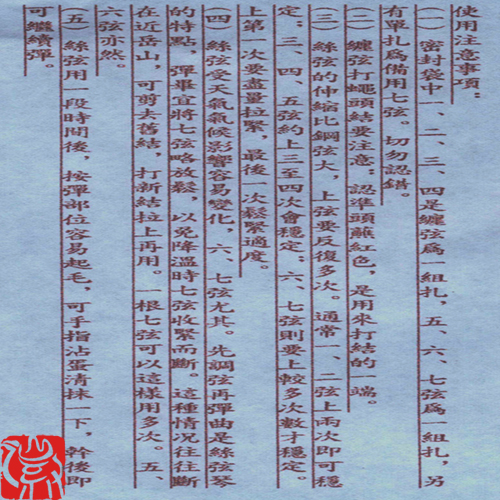 使用注意事項：
（一）密封袋中一、二、三、四是纏弦爲一組扎，五、六、七弦爲一組扎，另
有單扎爲備用七弦。切勿認錯。
（二）纏弦打蠅頭結要注意：認準頭蘸紅色，是用來打結的一端。
（三）絲弦的伸縮比鋼弦大，上弦要反復多次。通常一、二弦上兩次即可穩
定；三、四、五弦約上三至四次會穩定；六、七弦則要上較多次數才穩定。
上第一次要盡量拉緊，最後一次鬆緊適度。
（四）絲弦受天氣氣候影響容易變化，六、七弦尤其。先調弦再彈曲是絲弦琴
的特點。彈畢宜將七弦略放鬆，以免降溫時七弦收緊而斷。這種情况往往斷
在近岳山，可剪去舊結，打新結拉上再用。一根七弦可以這樣用多次。五、
六弦亦然。
（五）絲弦用一段時間後，按彈部位容易起毛，可手指沾蛋清抹一下，幹後即
可繼續彈。